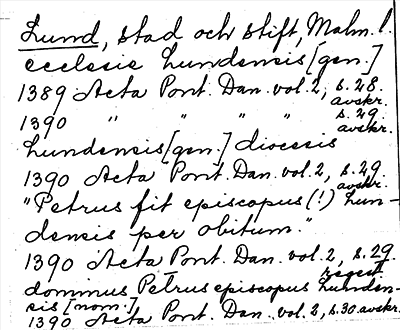 Lund, stad och stift, Malm. l.
ecclesie Lundensis [gen.]
1389 Acta Pont. Dan. vol. 2, s. 28.
avskr.
1390 " " " " s. 29
avskr.
Lundensis [gen.] diocesis
1390 Acta Pont. Dan. vol. 2, s. 29.
avskr.
"Petrus fit episcopus (!) Lun-
densis per obitum."
1390 Acta Pont. Dan. vol. 2, s. 29.
regest.
dominus Petrus episcopus Lunden-
sis [nom.]
1390 Acta Pont. Dan. vol. 2, s. 30. avskr.